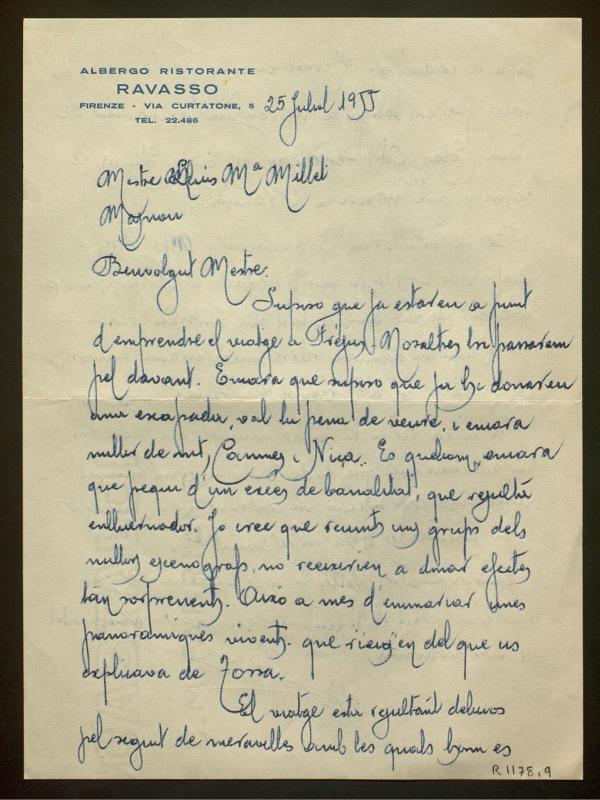 ALBERGO RISTORANTE
RAVASSO
FIRENZE - VIA CURTATONE, 5
TEL. 22.486
25 Juliol 1955
Mestre Lluis Mª Millet
Masnou
Benvolgut Mestre:
Suposo que ja estareu a punt
d'emprendre el viatge a Fréjus. Nosaltres hi passarem
pel davant. Encara que suposo que ja hi donareu
una escapada, val la pena de veure, i encara
millor de nit, Cannes i Niça. Es quelcom, encara
que pequi d'un excés de banalitat, que resulta
enlluernador. Jo crec que reunits uns grups dels
millors escenografs, no reexirien a donar efectes
tan sorprenents. Aixó a mes d'enmarcar unes
panoramiques vivents que del que us
explicava de Tossa.
El viatge esta resultant deliciós
pel seguit de meravelles amb les quals hom es
R.1178,9